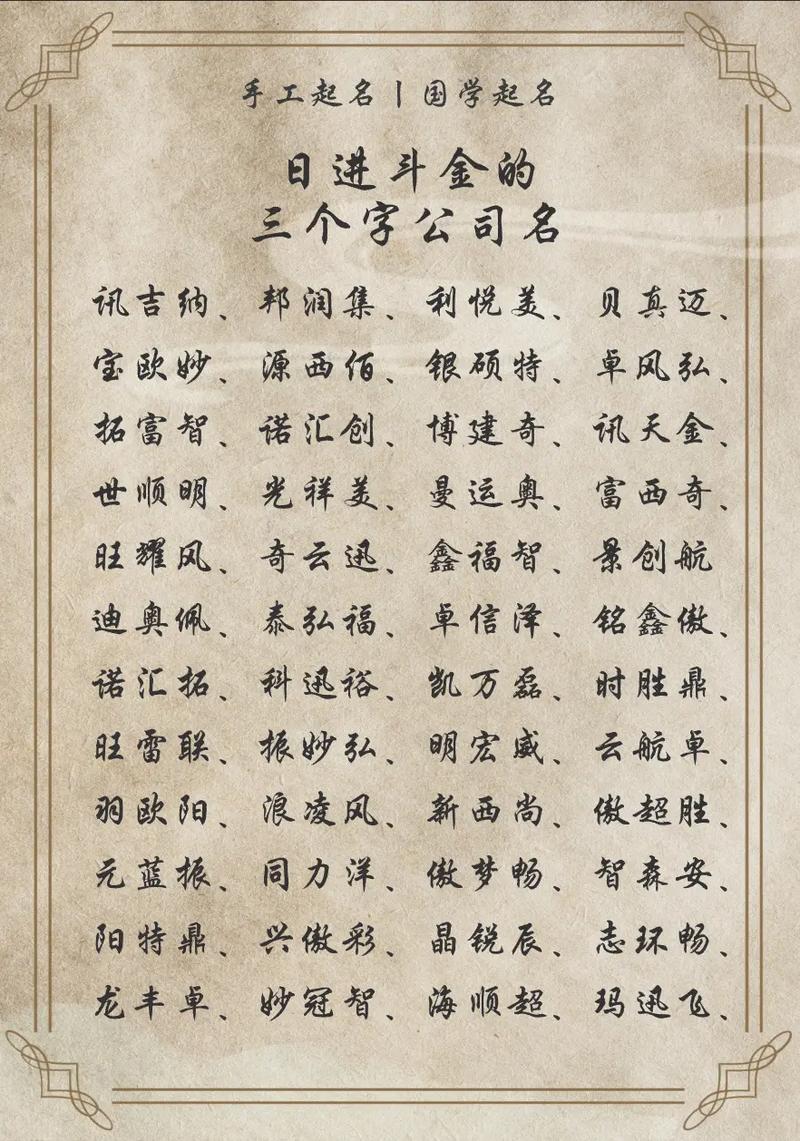 手工起名丨国学起名
日进斗金的
三个字公司名
讯吉纳、邦润集、利悦美、贝真迈、
宝欧妙、源西佰、银硕特、卓风弘、
拓富智、诺汇创、博建奇、讯天金、
世顺明、光祥美、曼运奥、富西奇、
旺耀风、奇云迅、鑫福智、景创航
迪奥佩、泰弘福、卓信泽、铭鑫傲、
诺汇拓、科迅裕、凯万磊、时胜鼎、
旺雷联、振妙弘、明宏威、云航卓、
羽欧阳、浪凌风、新西尚、傲超胜、
元蓝振、同力洋、傲梦畅、智森安、
阳特鼎、兴傲彩、晶锐辰、志环畅、
龙丰卓、妙冠智、海顺超、玛迅飞、